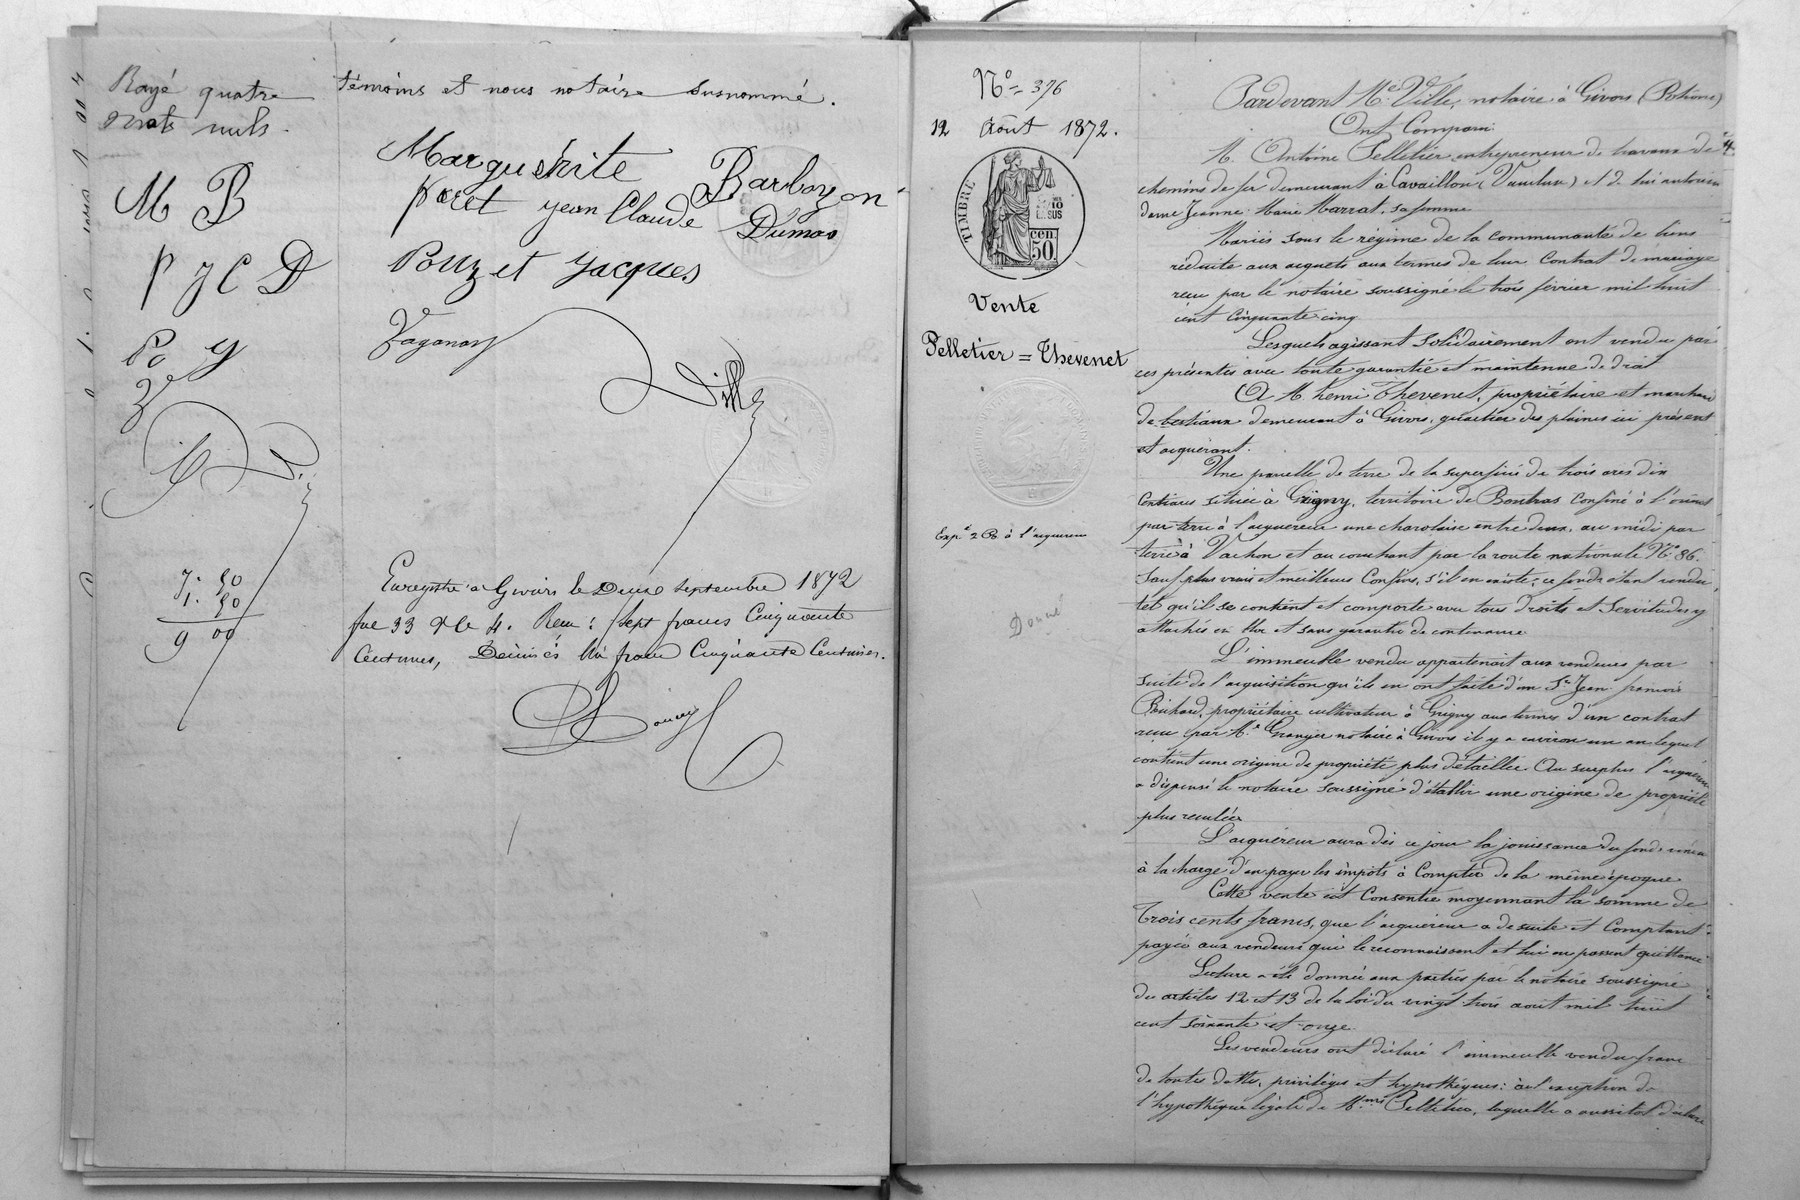 Rayé quatre
mots nuls.
M B
P J C D
Po J
7. 50
1. 50
9 00
témoins et nous notaire susnommé.
Marguerite Barbozon
poret jean Claude Dumas
Pouzet Jacques
Vaganay
Ville
Enregistré à Givors le Deux septembre 1872
fue 33 Rc 4. Reçu : Sept francs Cinquante
Centimes, Décimes Un franc Cinquante Centimes.
N° = 376
12 Août 1872.
TIMBRE
10
EN SUS
cen.
50.
Vente
Pelletier = Thevenet
Expé 2 R à l'acquéreur
Donné
Pardevant Me Ville, notaire à Givors (Rhône)
Ont Comparu
M. Antoine Pelletier, entrepreneur de travaux de
chemins de fer demeurant à Cavaillon (Vaucluse) et de lui autorisée
dame Jeanne Marie Marrat, sa femme
Mariés sous le régime de la communauté de biens
réduite aux acquets aux termes de leur Contrat de mariage
reçu par le notaire soussigné le trois février mil huit
cent Cinquante cinq
Lesquels agissant Solidairement ont vendu par
ces présentes avec toute garantie et maintenue de droit
A M. henri Thevenet, propriétaire et marchand
de bestiaux demeurant à Givors, quartier des plaines ici présent
et acquérant.
Une parcelle de terre de la superficie de trois ares dix
Centiares située à Grigny, territoire de Boutras Confiné à l'orient
par terre à l'acquereur une charolaise entre deux, au midi par
terre à Vachon et au couchant par la route nationale N° 86.
Sauf plus vrais et meilleurs Confins, s'il en existe; ce fonds étant vendu
tel qu'il se contient et comporte avec tous droits et servitudes y
attachés en l'loc et sans garantie de contenance
L'immeuble vendu appartenait aux vendeurs par
suite de l'acquisition qu'ils en ont faite d'un Sr Jean francois
Bouchard, propriétaire cultivateur à Grigny aux termes d'un contrat
reçu par Me Granger notaire à Givors il y a environ un an lequel
contient une origine de propriété plus détaillée. Au surplus l'acquéreur
a dispensé le notaire soussigné d'établir une origine de propriété
plus reculée
L'acquéreur aura dès ce jour la jouissance du fonds vendu
à la charge d'en payer les impôts à Compter de la même époque
Cette vente est Consentie moyennant la somme de
Trois cents francs, que l'acquéreur a de suite et Comptant
payée aux vendeurs qui le reconnaissent et lui en passent quittance
Lecture a été donnée aux parties par le notaire soussigné
des articles 12 et 13 de la loi du vingt trois août mil huit
cent soixante et onze.
Les vendeurs ont déclaré l'immeuble vendu franc
de toutes dettes, privilèges et hypothèques: à l'exception de
l'hypothèque légale de Mme Pelletier, laquelle a aussitôt déclaré